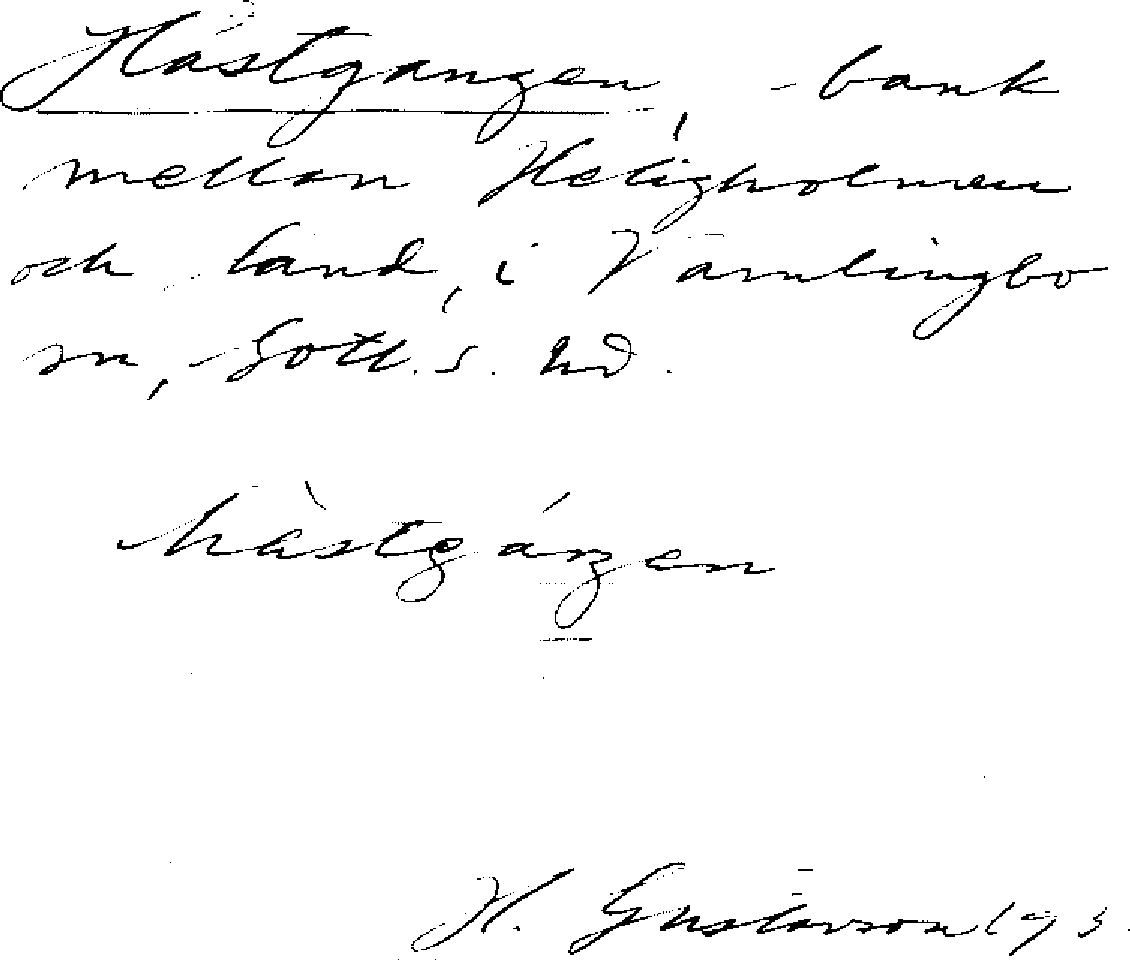 Hästgangen, bank
mellan Heligholmen
och land, i Vamlingbo
sn, Gotl. s. hd.
hàstgángen
H. Gustavson 193